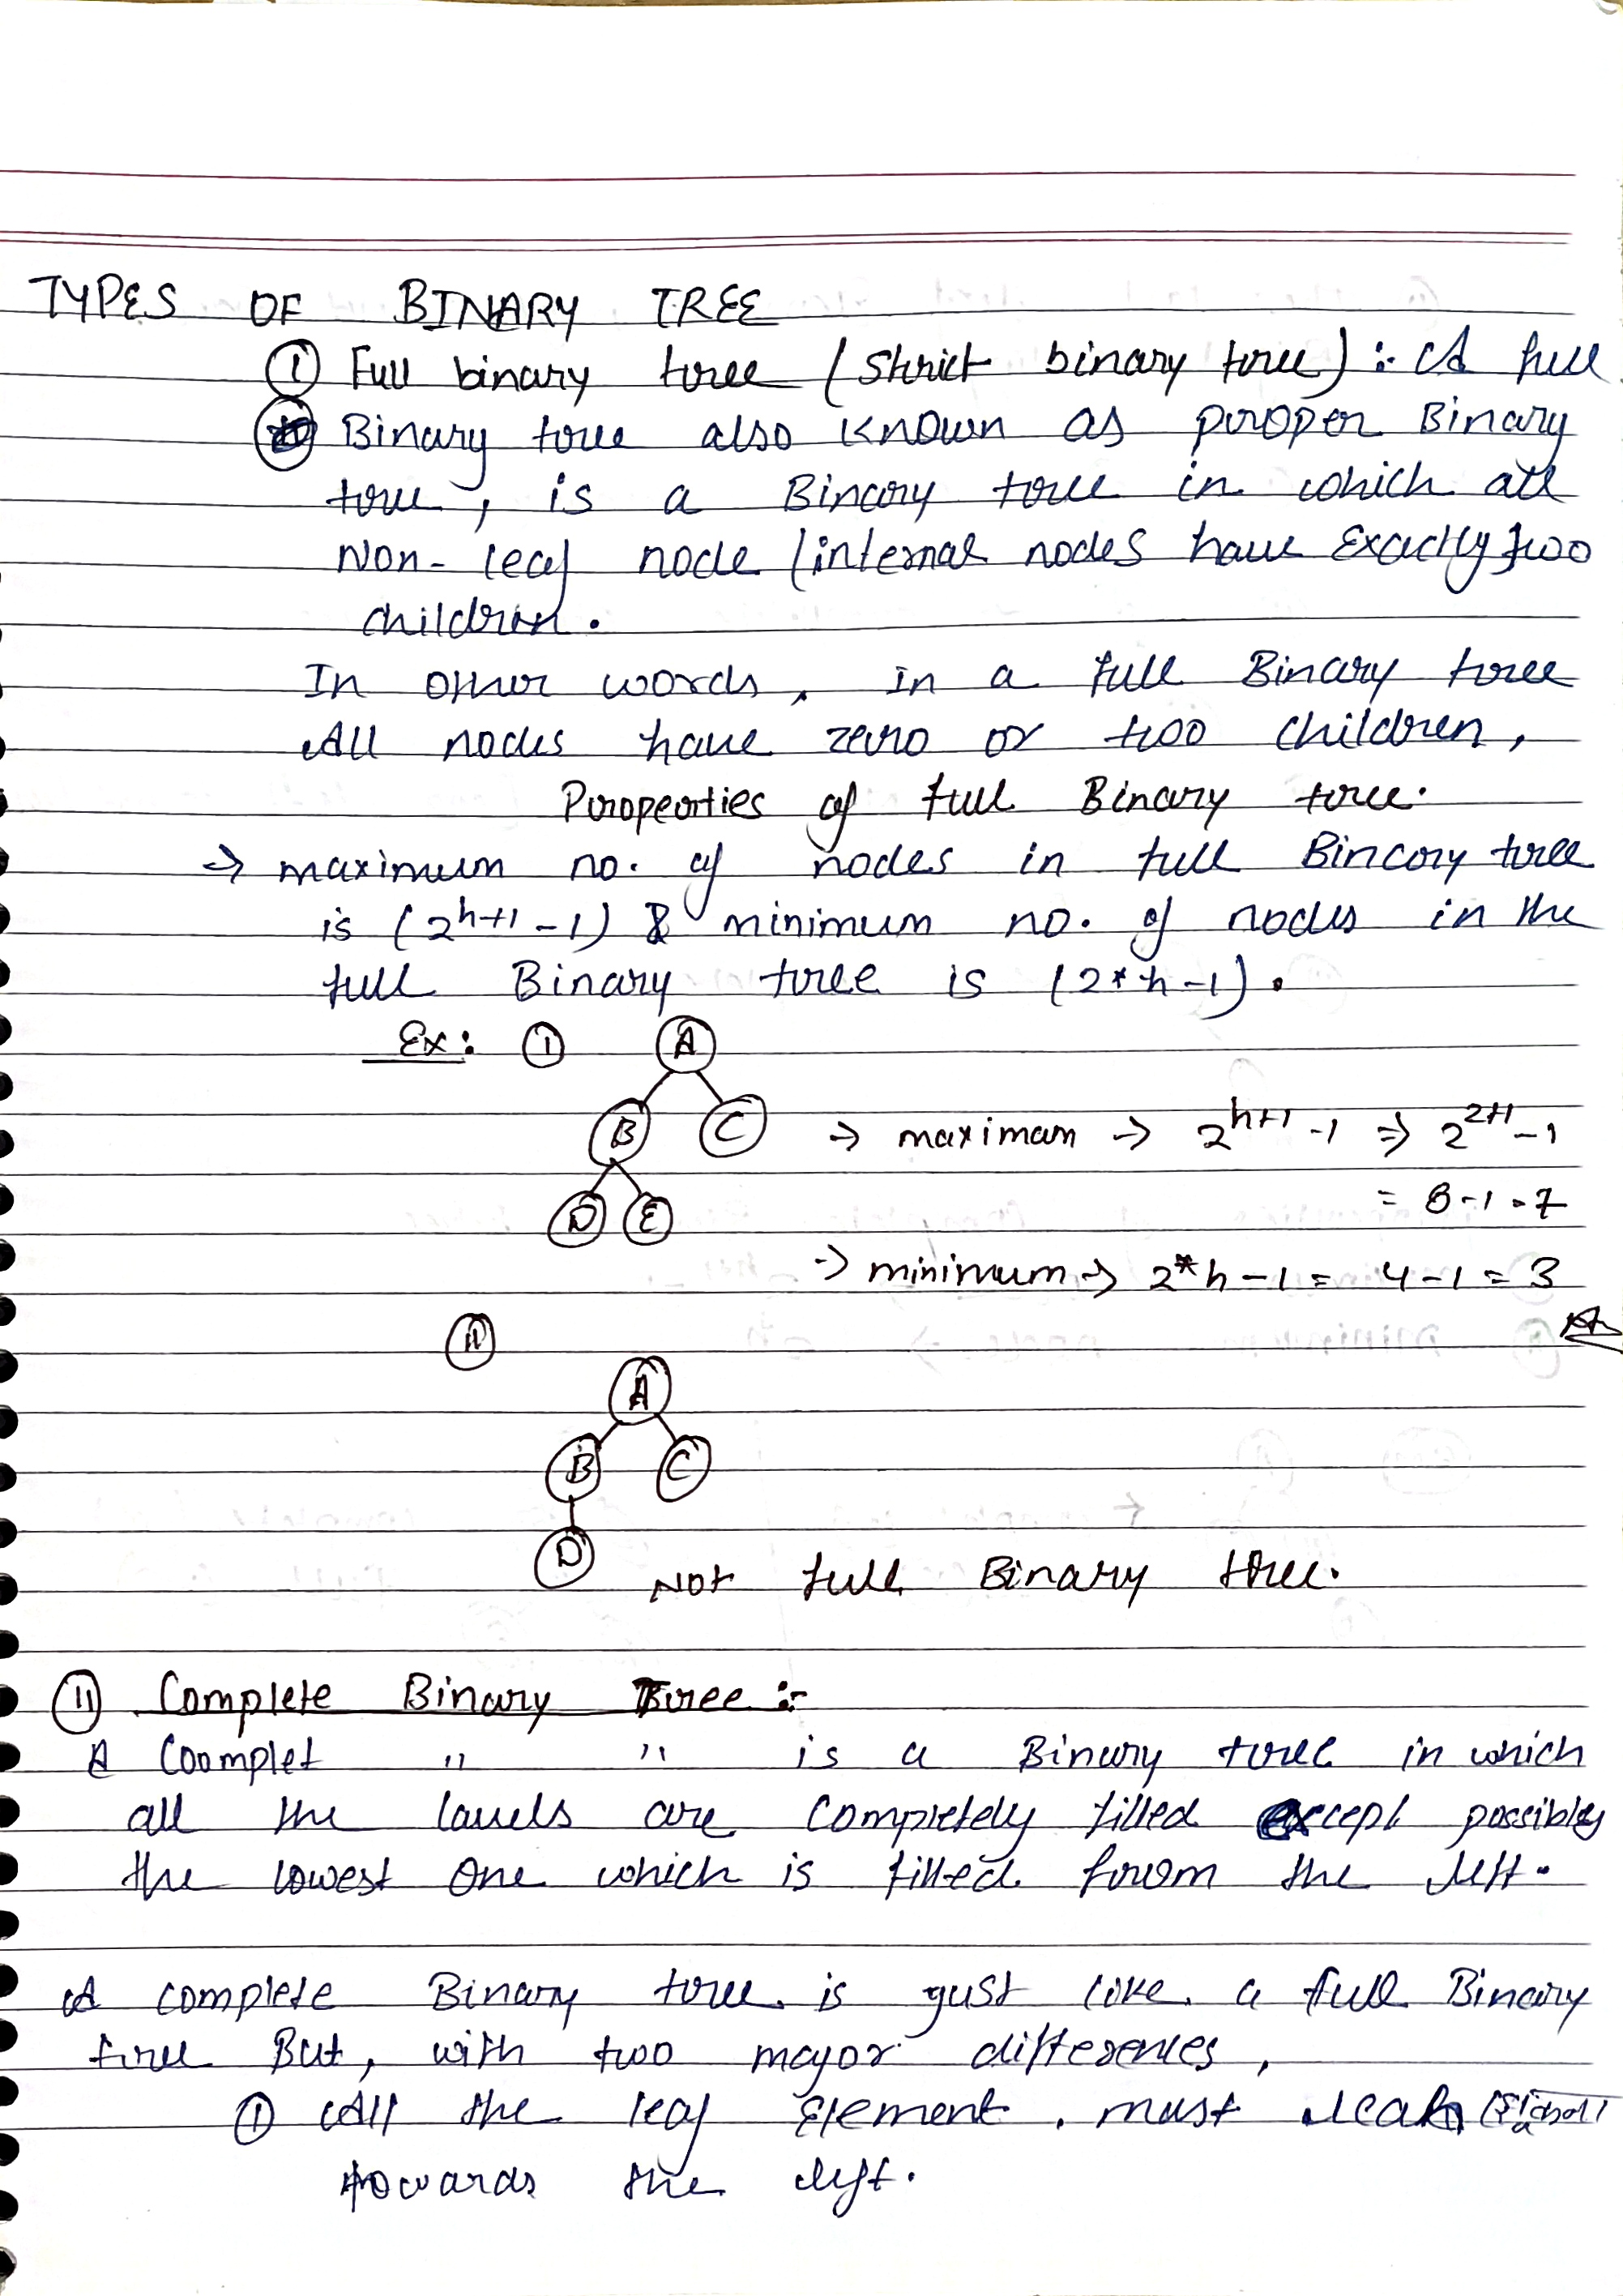 TYPES OF BINARY TREE
① Full binary tree (Strict binary tree) :- A full
Binary tree also known as proper Binary
tree, is a Binary tree in which all
Non-leaf node (internal nodes have Exactly two
children.
In other words, in a full Binary tree
All nodes have zero or two children,
Properties of full Binary tree.
→ maximum no. of nodes in full Binary tree
is (2^h+1 - 1) & minimum no. of nodes in the
full Binary tree is (2*h-1).
Ex: ①
A
B C
→ maximam → 2^h+1 -1 ⇒ 2^2+1 -1
D E
= 8-1 = 7
→ minimum → 2*h-1 = 4-1 = 3
⑪
A
B C
D
Not full Binary tree.
⑪ Complete Binary Tree :-
A Coomplet " " is a Binary tree in which
all the lavels are completely filled except possibly
the lowest one which is filled from the left.
A complete Binary tree is gust like a full Binary
tree But, with two mayor differences,
① All the leaf Element must lean
towards the left.